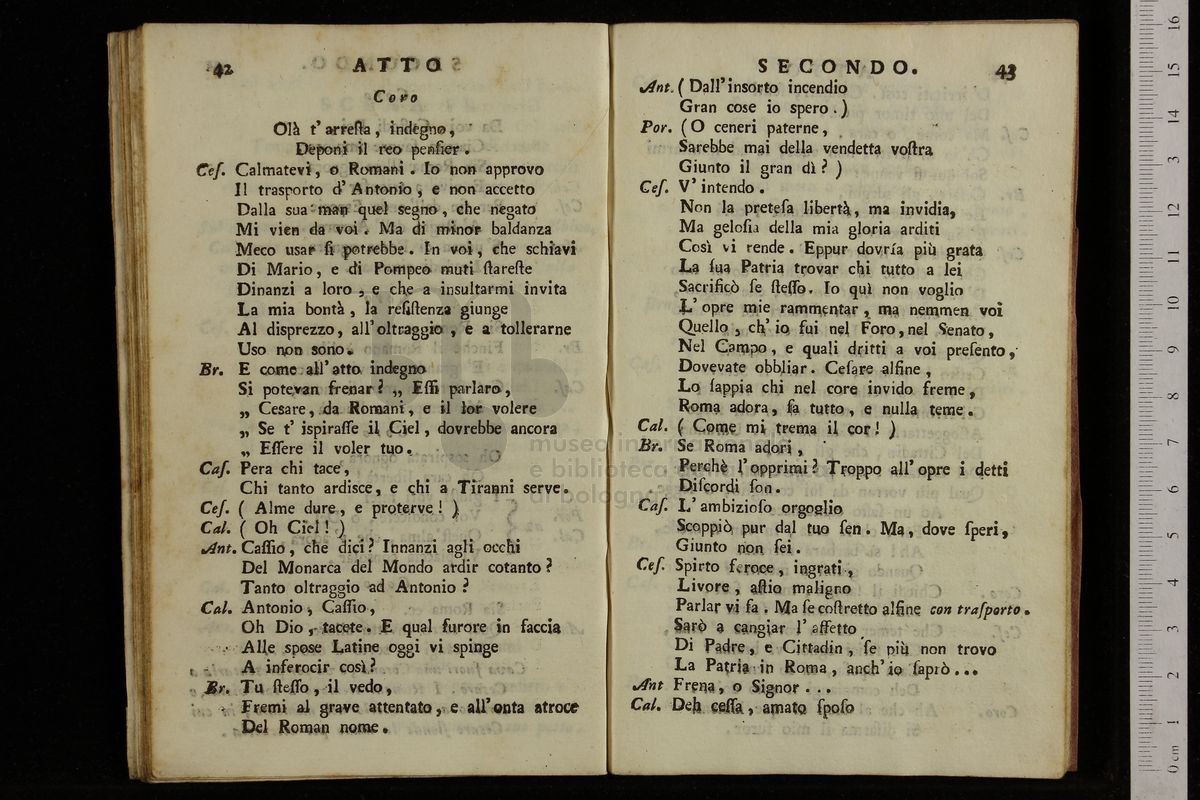 42 ATTO
Coro
Olà t' arreſta, indegno,
Deponi il reo penſier.
Ceſ. Calmatevi, o Romani. Io non approvo
Il trasporto d' Antonio, e non accetto
Dalla sua man quel segno, che negato
Mi vien da voi. Ma di minor baldanza
Meco usar ſi potrebbe. In voi, che schiavi
Di Mario, e di Pompeo muti ſtareſte
Dinanzi a loro, e che a insultarmi invita
La mia bontà, la reſiſtenza giunge
Al disprezzo, all' oltraggio, e a tollerarne
Uso non sono.
Br. E come all' atto indegno
Si potevan frenar? „ Eſſi parlaro,
„ Cesare, da Romani, e il lor volere
„ Se t' ispiraſſe il Ciel, dovrebbe ancora
„ Eſſere il voler tuo.
Caſ. Pera chi tace,
Chi tanto ardisce, e chi a Tiranni serve.
Ceſ. ( Alme dure, e proterve! )
Cal. ( Oh Ciel! )
Ant. Caſſio, che dici? Innanzi agli occhi
Del Monarca del Mondo ardir cotanto?
Tanto oltraggio ad Antonio?
Cal. Antonio, Caſſio,
Oh Dio, tacete. E qual furore in faccia
Alle spose Latine oggi vi spinge
A inferocir così?
Br. Tu ſteſſo, il vedo,
Fremi al grave attentato, e all' onta atroce
Del Roman nome.
SECONDO. 43
Ant. ( Dall' insorto incendio
Gran cose io spero. )
Por. (O ceneri paterne,
Sarebbe mai della vendetta voſtra
Giunto il gran dì? )
Ceſ. V' intendo.
Non la preteſa libertà, ma invidia,
Ma geloſia della mia gloria arditi
Così vi rende. Eppur dovría più grata
La ſua Patria trovar chi tutto a lei
Sacrificò ſe ſteſſo. Io quì non voglio
L' opre mie rammentar, ma nemmen voi
Quello, ch' io fui nel Foro, nel Senato,
Nel Campo, e quali dritti a voi preſento,
Dovevate obbliar. Ceſare alfine,
Lo ſappia chi nel core invido freme,
Roma adora, fa tutto, e nulla teme.
Cal. ( Come mi trema il cor! )
Br. Se Roma adori,
Perchè l' opprimi? Troppo all' opre i detti
Diſcordi ſon.
Caſ. L' ambizioſo orgoglio
Scoppiò pur dal tuo ſen. Ma, dove ſperi,
Giunto non ſei.
Ceſ. Spirto feroce, ingrati,
Livore, aſtio maligno
Parlar vi fa. Ma ſe coſtretto alfine con traſporto.
Sarò a cangiar l' affetto
Di Padre, e Cittadin, ſe più non trovo
La Patria in Roma, anch' io ſaprò...
Ant Frena, o Signor...
Cal. Deh ceſſa, amato ſpoſo
museo internazionale
e biblioteca della musica
di bologna